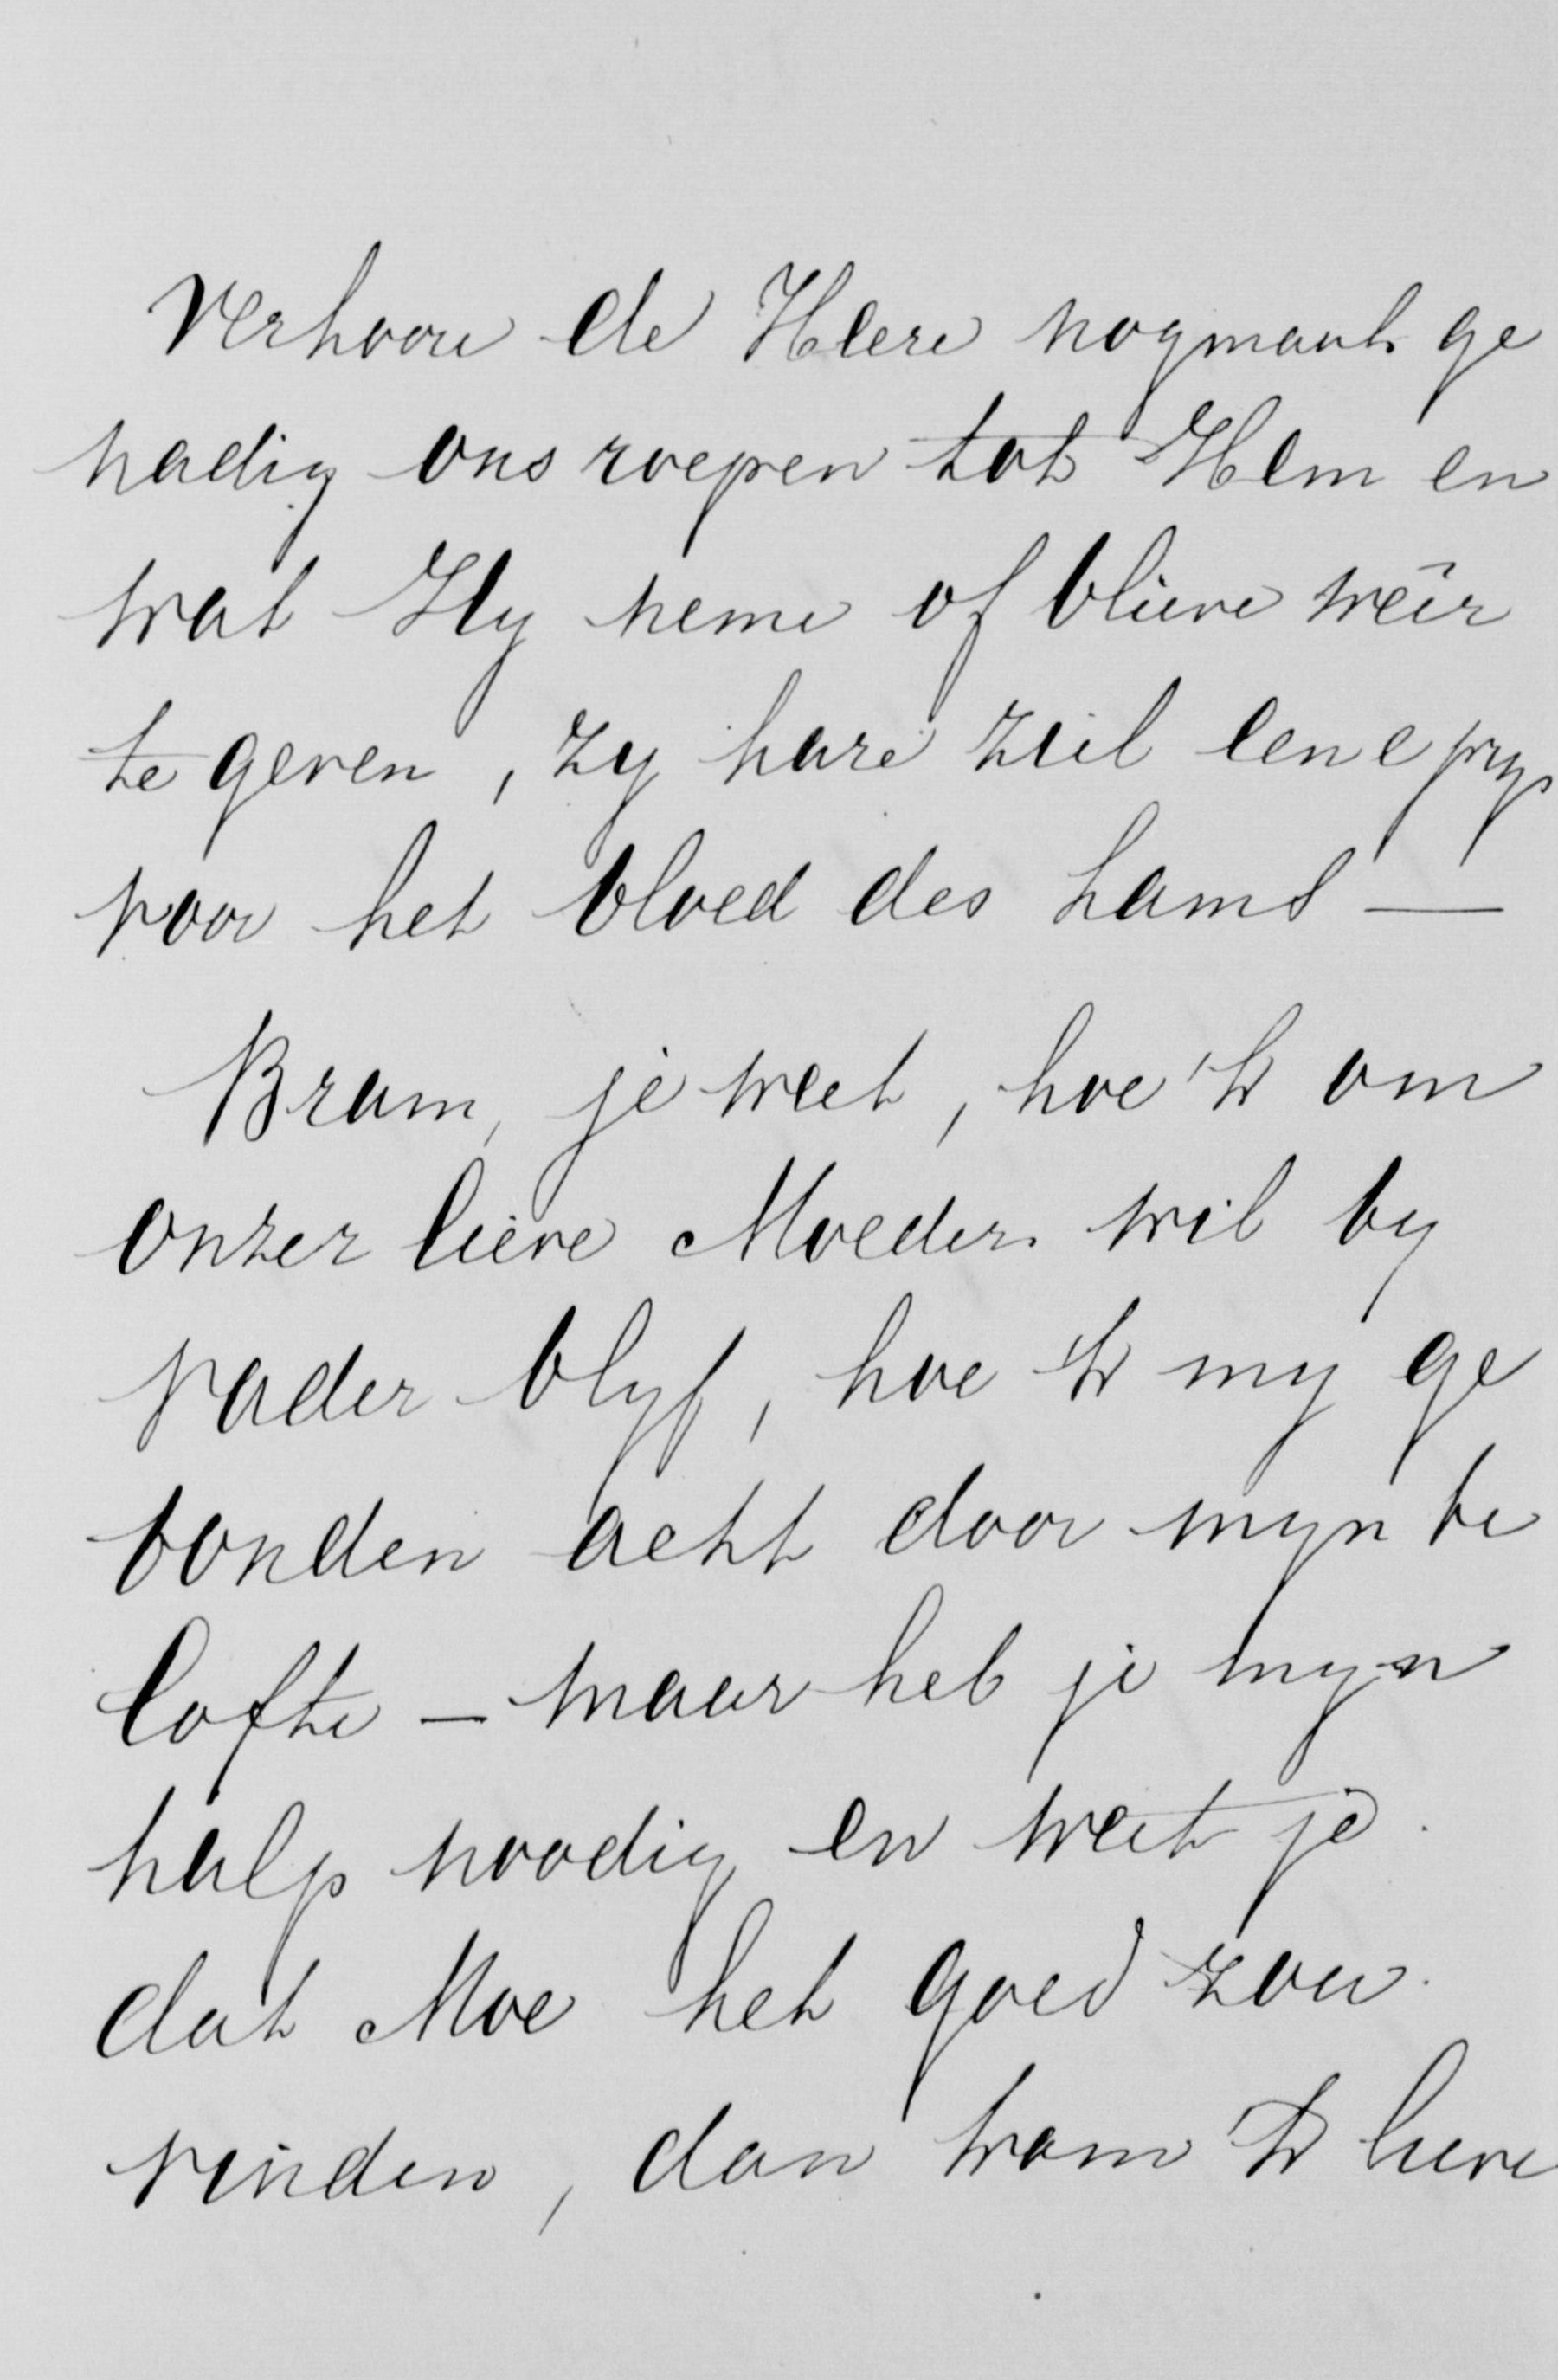 Verhoore de Heere nogmaals ge
nadig ons roepen tot Hem en
wat Hy neme of blieve weêr
te geven, zy hare ziel eene prys
voor het bloed des Lams —
Bram, je weet, hoe 'k om
onzer lieve Moeders wil by
Vader blyf, hoe 'k my ge
bonden acht door myn be
lofte — maar heb je myn
hulp noodig en weet je
dat Moe het goed zou
vinden, dan kom 'k lieve